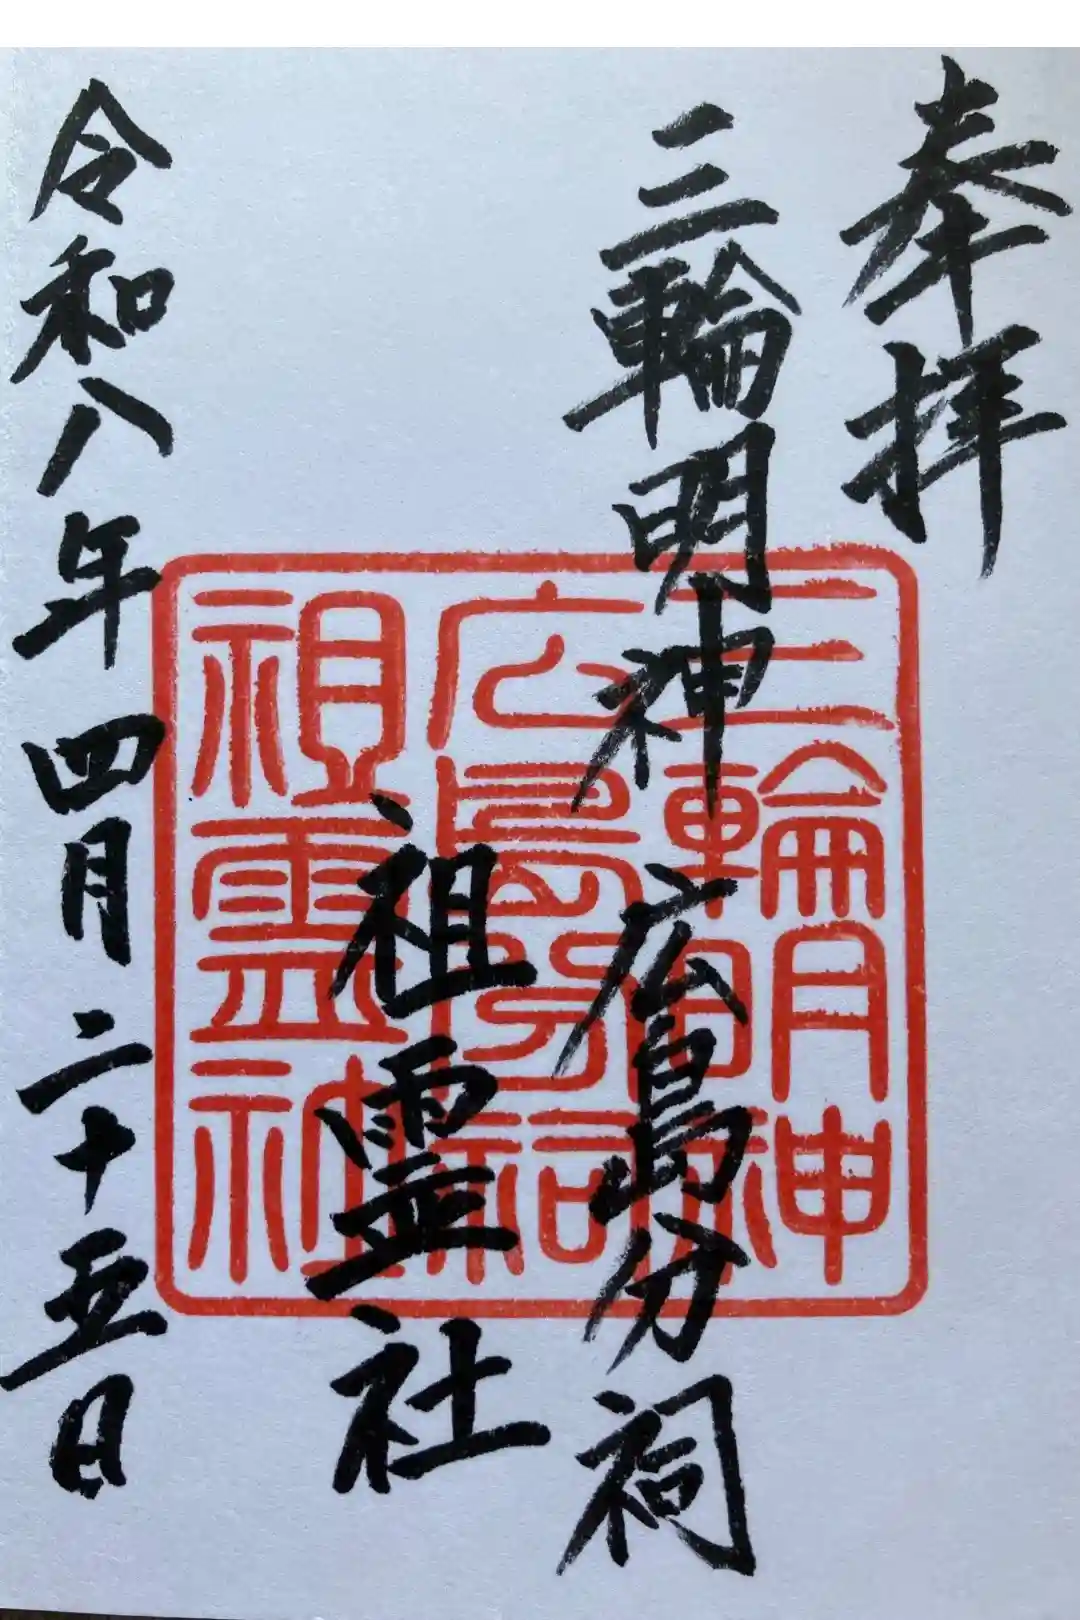 奉拝
三輪明神広島分祠
祖霊社
令和八年四月二十五日
三輪明神
広島分祠
祖霊社